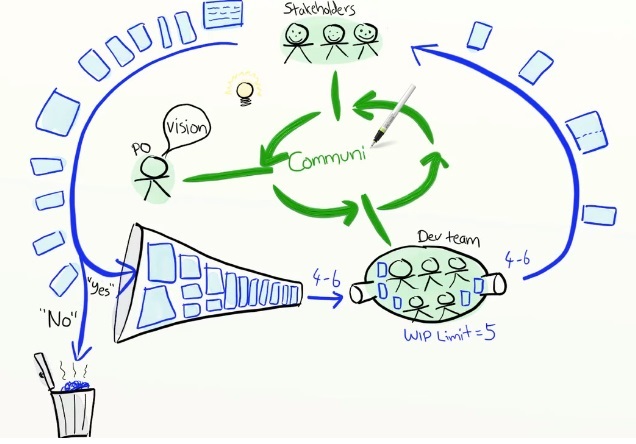 Stakeholders
vision
PO
Communi
Dev team
4-6
4-6
"Yes"
"No"
WIP Limit = 5